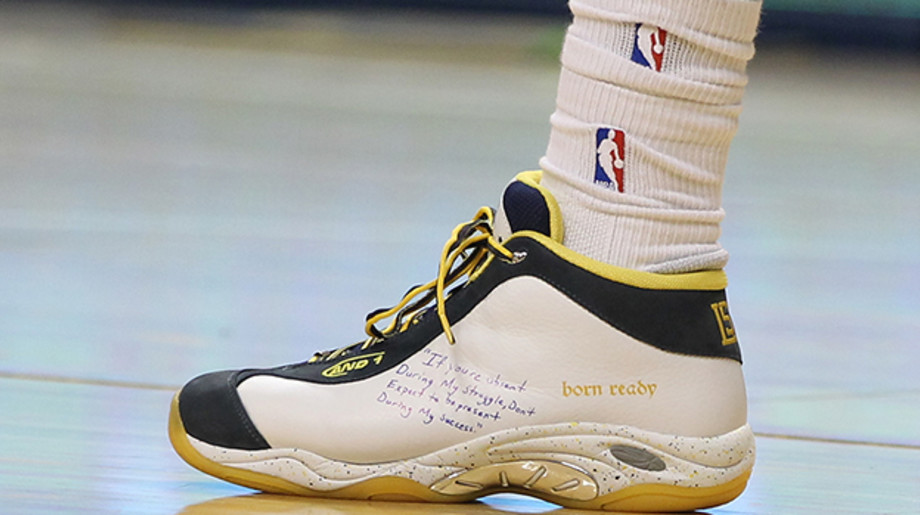 AND 1
"If you're absent
During My struggle, Don't
Expect to be present
During My success."
born ready